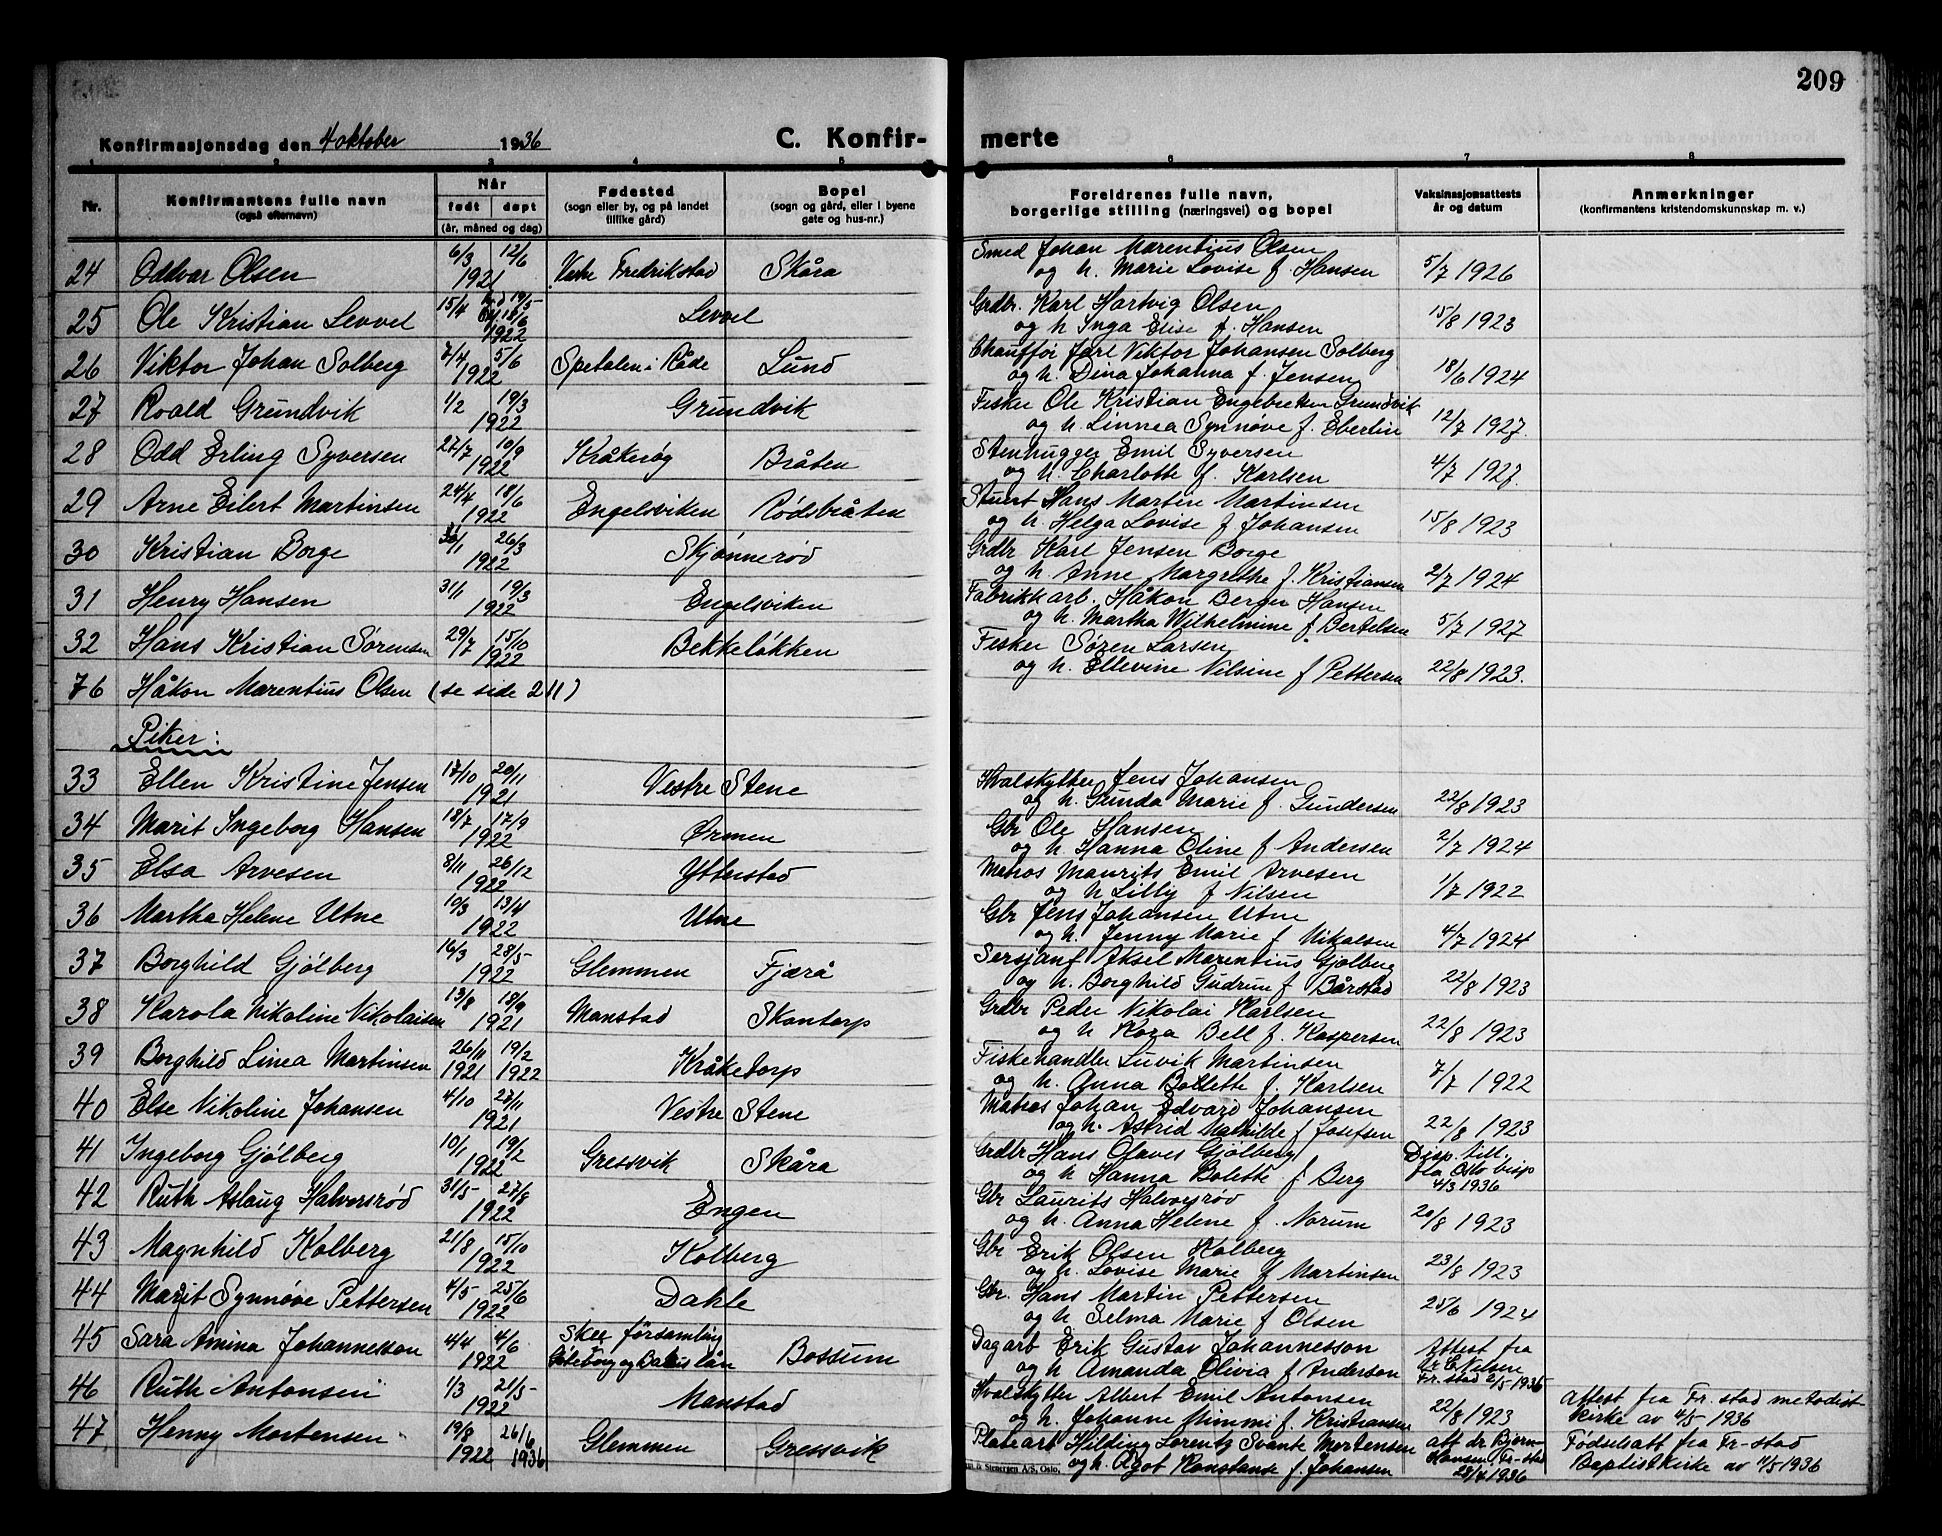 209
Konfirmasjonsdag den 4 oktober 1936
C. Konfir- merte
1 2 3 4 5 6 7 8
Nr.
Konfirmantens fulle navn
(også efternavn)
Når
født døpt
(år, måned og dag)
Fødested
(sogn eller by, og på landet
tillike gård)
Bopel
(sogn og gård, eller i byene
gate og hus-nr.)
Foreldrenes fulle navn,
borgerlige stilling (næringsvei) og bopel
Vaksinasjonsattests
år og datum
Anmerkninger
(konfirmantens kristendomskunnskap m. v.)
24 Oddvar Olsen 6/3 12/6 1921 Vestre Fredrikstad Skåra Smed Johan Marentius Olsen
og h. Marie Lovise f. Hansen 5/7 1926
25 Ole Kristian Levvel 15/4 18/6 1922 Levvel Grdbr. Karl Hartvig Olsen
og h Inga Elise f. Hansen 15/8 1923
26 Viktor Johan Solberg 7/4 5/6 1922 Spetalen i Råde Lund Chauffør Jarl Viktor Johansen Solberg
og h. Dina Johanna f. Jensen 18/6 1924
27 Roald Grundvik 1/2 19/3 1922 Grundvik Fisker Ole Kristian Engebretsen Grundvik
og h. Linnea Synnøve f. Ebertin 12/7 1927.
28 Odd Erling Syversen 27/7 10/9 1922 Kråkerøy Bråten Stenhugger Emil Syversen
og h. Charlotte f. Karlsen 4/7 1927.
29 Arne Eilert Martinsen 24/4 18/6 1922 Engelsviken Rødsbråten Stuert Hans Martin Martinsen
og h. Helga Lovise f Johansen 15/8 1923
30 Kristian Borge 30/1 26/3 1922 Skjønnerød Grdbr Karl Jensen Borge
og h. Anne Margrethe f. Kristiansen 2/7 1924
31 Henry Hansen 31/1 19/3 1922 Engelsviken Fabrikkarb. Håkon Berger Hansen
og h. Martha Wilhelmine f Bertelsen 5/7 1927
32 Hans Kristian Sørensen 29/7 15/10 1922 Bekkeløkken Fisker Søren Larsen
og h. Ellevine Nilsine f Pettersen 22/8 1923.
76 Håkon Marentius Olsen (se side 211)
Piker:
33 Ellen Kristine Jensen 17/10 20/11 1921 Vestre Stene Hvalskytter Jens Johansen
og h. Gunda Marie f Gundersen 22/8 1923
34 Marit Ingeborg Hansen 18/7 17/9 1922 Ørmen Gbr Ole Hansen
og h. Hanna Oline f Andersen 2/7 1924
35 Elsa Arvesen 8/11 26/12 1922 Ytterstad Matros Maurits Emil Arvesen
og h Lilly f Nilsen 1/7 1922
36 Martha Helene Utne 10/3 13/4 1922 Utne Gbr Jens Johansen Utne
og h. Jenny Marie f Nikolsen 4/7 1924
37 Borghild Gjølberg 16/3 28/5- 1922 Glemmen Fjærå Sersjant Aksel Marentius Gjølberg
og h. Borghild Gudrun f Bårstad 22/8 1923
38 Karola Nikoline Nikolaisen 13/8 18/9 1921 Manstad Skantorp Grdbr Peder Nikolai Karlsen
og h Kaza Bell f. Kaspersen 22/8 1923
39 Borghild Linea Martinsen 26/11 1921 19/2 1922 Kråketorp Fiskehandler Luvik Martinsen
og h. Anna Bollette f. Karlsen 7/7 1922
40 Else Nikoline Johansen 4/10 27/11 1921 Vestre Stene Matros Johan Edvard Johansen
og h. Astrid Mathilde f Josefsen 22/8 1923
41 Ingeborg Gjølberg 10/1 19/2 1922 Gressvik Skåra Grdbr Hans Olaves Gjølberg
og h Hanna Bolette f Berg Disp. till.
fra Oslo bisp
4/3 1936
42 Ruth Aslaug Halvorsrød 31/5- 27/8 1922 Engen Gbr Laurits Halvorsrød
og h. Anna Helene f. Norum 20/8 1923
43 Magnhild Kolberg 21/8 15/10 1922 Kolberg Gbr Erik Olsen Kolberg
og h. Lovise Marie f Martinsen 23/8 1923
44 Marit Synnøve Pettersen 4/5- 25/6 1922 Dahle Gbr. Hans Martin Pettersen
og h Selma Marie f Olsen 25/6 1924
45 Sara Amina Johannesson 4/4 4/6 1922 Skee församling
Göteborg og Bohus län Bossum Dagarb Erik Gustav Johannesson
og h Amanda Olivia f Anderson Attest fra
dr C Nilsen
Fr.stad 2/5 1936
46 Ruth Antonsen 1/3 21/5- 1922 Manstad Hvalskytter Albert Emil Antonsen
og h. Johanne Mimmi f. Kristiansen 22/8 1923 attest fra Fr.stad metodist
kirke av 4/5 1936
47 Henny Mortensen 19/8 1922 26/6 1936 Glemmen Gressvik Platearb Hilding Lorentz Svante Mortensen
og h. Agot Konstanse f. Johansen att dr Bjørn-
Hansen Fr-stad
28/4 1936 Fødselsatt fra Fr-stad
Baptistkirke av 4/5 1936